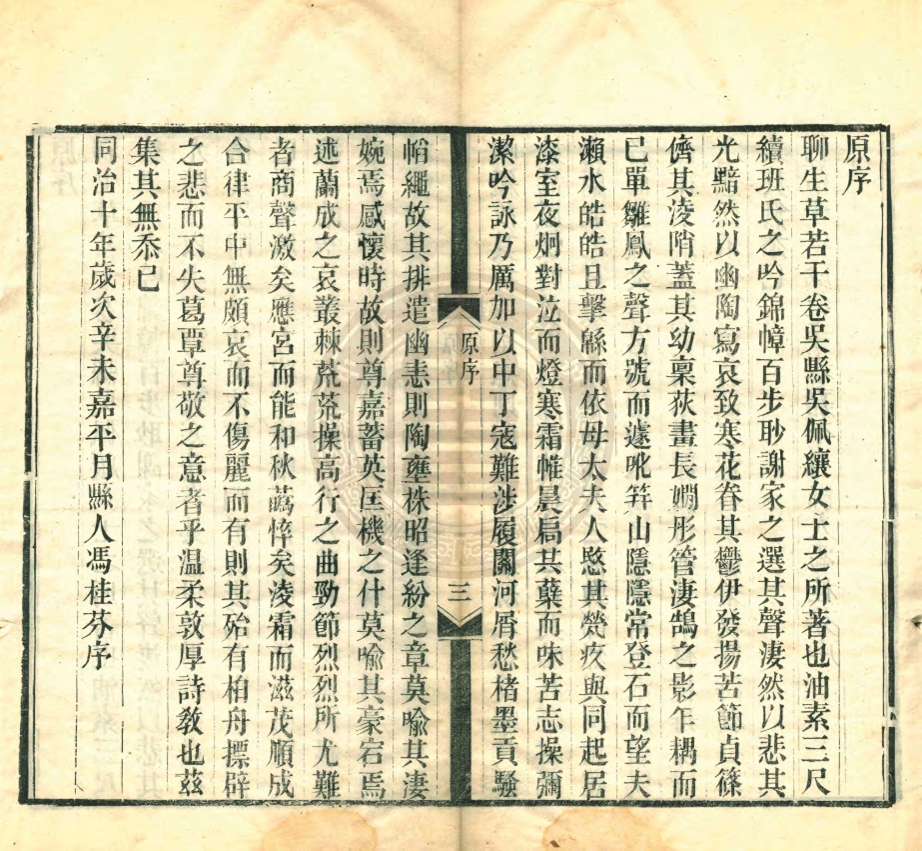 原序
聊生草若干卷吳縣吳佩纕女士之所著也油素三尺
續班氏之吟錦幛百步耹謝家之選其聲淒然以悲其
光黯然以幽陶寫哀致寒花眷其鬱伊發揚苦節貞篠
儕其淩陗蓋其幼稟荻畫長嫺彤管淒鵠之影乍耦而
已單雛鳳之聲方號而遽吪笄山隱隱常登石而望夫
瀨水皓皓且擊緜而依母太夫人愍其煢疚與同起居
漆室夜炯對泣而燈寒霜帷晨扃其蘗而味苦志操彌
潔吟詠乃厲加以中丁寇難涉履關河屑愁楮墨貢騷
帩繩故其排遣幽恚則陶壅株昭逢紛之章莫喻其淒
婉焉感懷時故則尊嘉蓄英匡機之什莫喻其豪宕焉
述蘭成之哀叢棘荒荒操高行之曲勁節烈烈所尤難
者商聲激矣應宮而能和秋蘤悴矣凌霜而滋茂順成
合律平中無頗哀而不傷麗而有則其殆有柏舟摽辟
之悲而不失葛覃尊敬之意者乎温柔敦厚詩敎也茲
集其無忝已
同治十年歲次辛未嘉平月縣人馮桂芬序
原序
三